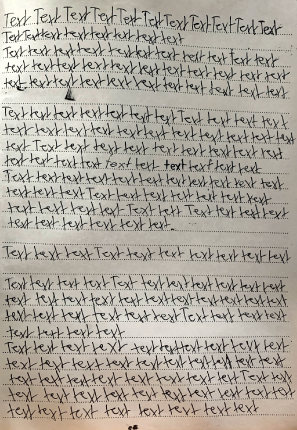 Text Text Text Text Text Text Text Text Text Text
Text Text text text text text text text
Text text text text text text text text text text
text text text text text text text text text text
text text text text text text text text text text
Text text text text text text Text text text text
text text text text text text text text text text
text text Text text text text text text text text
text text text text text text text text text text
Text text text text text text text text text text
text text text Text text text text text text
text text text text Text text Text text text text
text text text text text text.
Text text text text Text text text text text text text
Text text text text Text text text text text text
text text text text text text text text text text
text text text text text text Text text text text
text text text text text
Text text text text text text text text text text
text text text text text text text text text text
text text text text text text text text Text text
text text text text text text text text text text
text text text text text text text text